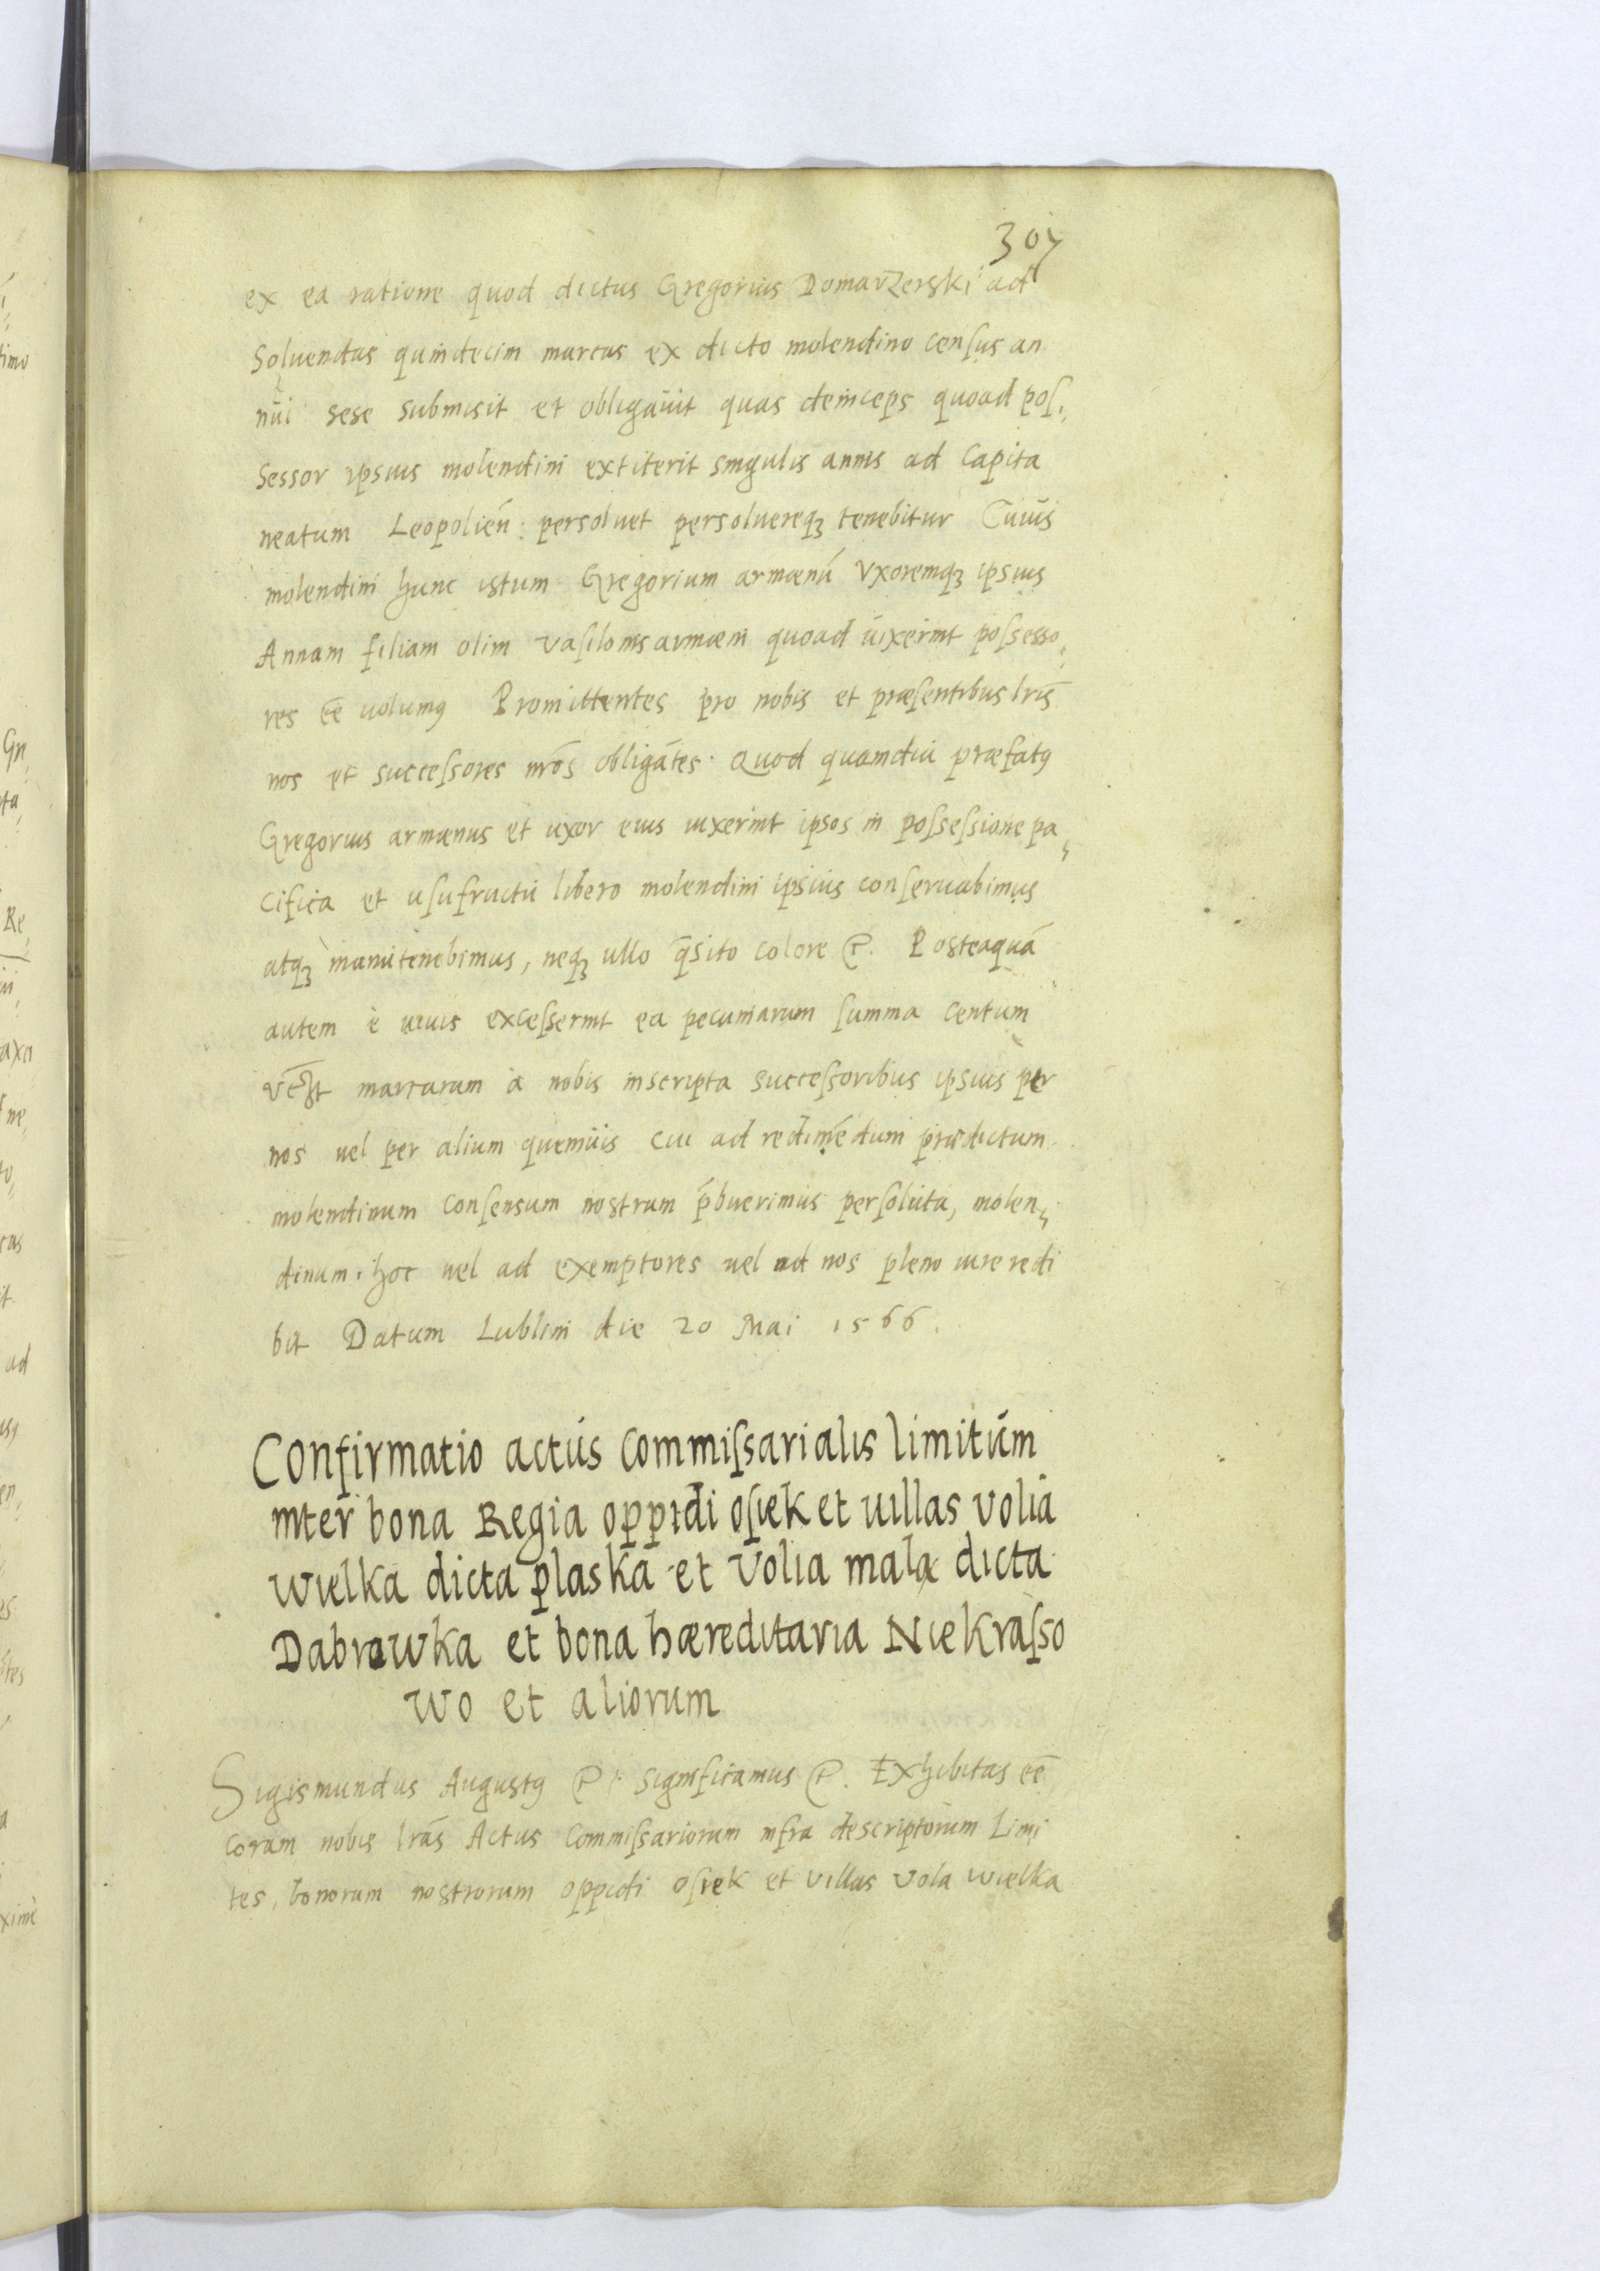 307
ex ea ratione quod dictus Gregorius Domarzerski ad
Soluendas quindecim marcas ex dicto molendino censꝰus an
nui sese submisit et obligauit quas deinceps quoad pos,
sessor ipsius molendini extiterit singulis annis ad Capita
neatum Leopolień: persoluet persoluereqꝫ tenebitur Cuius
molendini hunc istum Gregorium armenū Vxoremqꝫ ipsius
Annam filiam olim Vasilonis armeni quoad uixerint possesso,
res eē̄ uolumꝰ Promittentes pro nobis et præsentibus lrīs
nos et successores nrōs obligātes. Quod quamdiu præfatꝰ
Gregorius armenus et uxor eius uixerint ipsos in possessione pa,
cifica et usufructu libero molendini ipsius conseruabimus
atqꝫ manutenebimus, neqꝫ ullo q̄sito colore etc. Posteaquā
autem è uiuis excesserint ea pecuniarum summa centum
marcarum à nobis inscripta successoribus ipsius per
nos uel per alium quemuis cui ad redimēdum prædictum
molendinum consensum nostrum p̄buerimus persoluta, molen,
dinum hoc uel ad exemptores uel ad nos pleno iure redi
bit Datum Lublini die 20 Mai 1566.
Confirmatio actus Commissarialis limitum
inter bona Regia oppidi osiek et uillas Volia
Wielka dicta plaska et Volia mala dicta
Dabrowka et bona hæreditaria Niekrasso
wo et aliorum
Sigismundus Augustꝰ etc. Significamus etc. Exhibitas eē̄
coram nobis lrās Actus Commissariorum infra descriptorum Limi
tes, bonorum nostrorum oppidi Osiek et Villas Vola Wielka